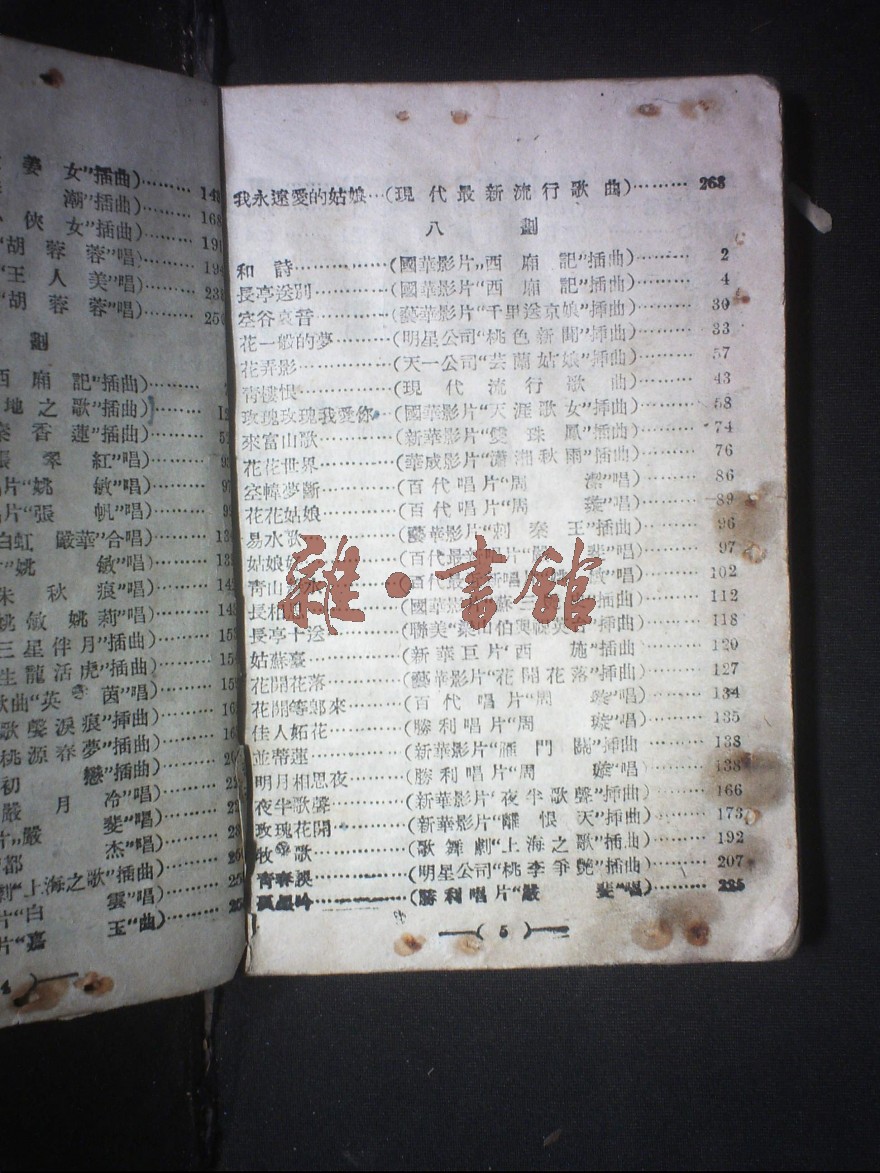 姜 女”插曲)………
潮”插曲)……… 168
俠 女”插曲)……… 191
“胡 蓉 蓉”唱)……… 194
“王 人 美”唱)………
“胡 蓉 蓉”唱)………
劃
西 廂 記”插曲)………
地之歌”插曲)………
秦 香 蓮”插曲)………
張 翠 紅”唱)………
片“姚 敏”唱)………
片“張 帆”唱)………
白虹 嚴華”合唱)………
“姚 敏”唱)………
朱 秋 痕”唱)………
姚敏 姚莉”唱)………
三星伴月”插曲)………
生龍活虎”插曲)………
歌曲“英 茵”唱)………
歌聲淚痕”插曲)………
桃源春夢”插曲)………
初 戀”插曲)………
嚴 月 冷”唱)………
片“嚴 斐”唱)………
都 杰”唱)………
劇“上海之歌”插曲)………
片“白 雲”唱)………
片“嘉 玉”曲)………
我永遠愛的姑娘…(現代最新流行歌曲)……… 268
八 劃
和 詩……………(國華影片„西 廂 記”插曲)……… 2
長亭送別…………(國華影片“西 廂 記”插曲)……… 4
空谷哀音…………(藝華影片“千里送京娘”插曲)…… 30
花一般的夢………(明星公司“桃色新聞”插曲)……… 33
花弄影……………(天一公司“芸蘭姑娘”插曲)……… 57
青樓恨……………(現 代 流 行 歌 曲)……… 43
玫瑰玫瑰我愛你…(國華影片“天涯歌女”插曲)……… 58
來富山歌…………(新華影片“雙 珠 鳳”插曲)……… 74
花花世界…………(華威影片“瀟湘秋雨”插曲)……… 76
空幃夢斷…………(百代唱片“周 潔”唱)……… 86
花花姑娘…………(百代唱片“周 璇”唱)……… 89
易水歌……………(藝華影片“刺 秦 王”插曲)……… 96
姑娘 (百代最新唱片 斐”唱)……… 97
青山 唱 敏”唱)……… 102
長相 (國華影 插曲)……… 112
長亭十送…………(聯美“梁山伯與祝英台”插曲)…… 118
姑蘇臺……………(新華巨片“西 施”插曲)……… 120
花開花落…………(藝華影片“花開花落”插曲)……… 127
花開等郎來………(百代唱片“周 璇”唱)……… 134
佳人妬花…………(勝利唱片“周 璇”唱)……… 135
並蒂蓮……………(新華影片“雁 門 關”插曲……… 138
明月相思夜………(勝利唱片“周 璇”唱)……… 138
夜半歌聲…………(新華影片“夜半歌聲”插曲)……… 166
玫瑰花開…………(新華影片“離 恨 天”插曲)……… 173
牧 歌……………(歌舞劇“上海之歌”插曲)……… 192
青春誤……………(明星公司“桃李爭艷”插曲)……… 207
吟……………(勝利唱片“嚴 斐”唱)……… 225
—( 5 )—
雜·書館